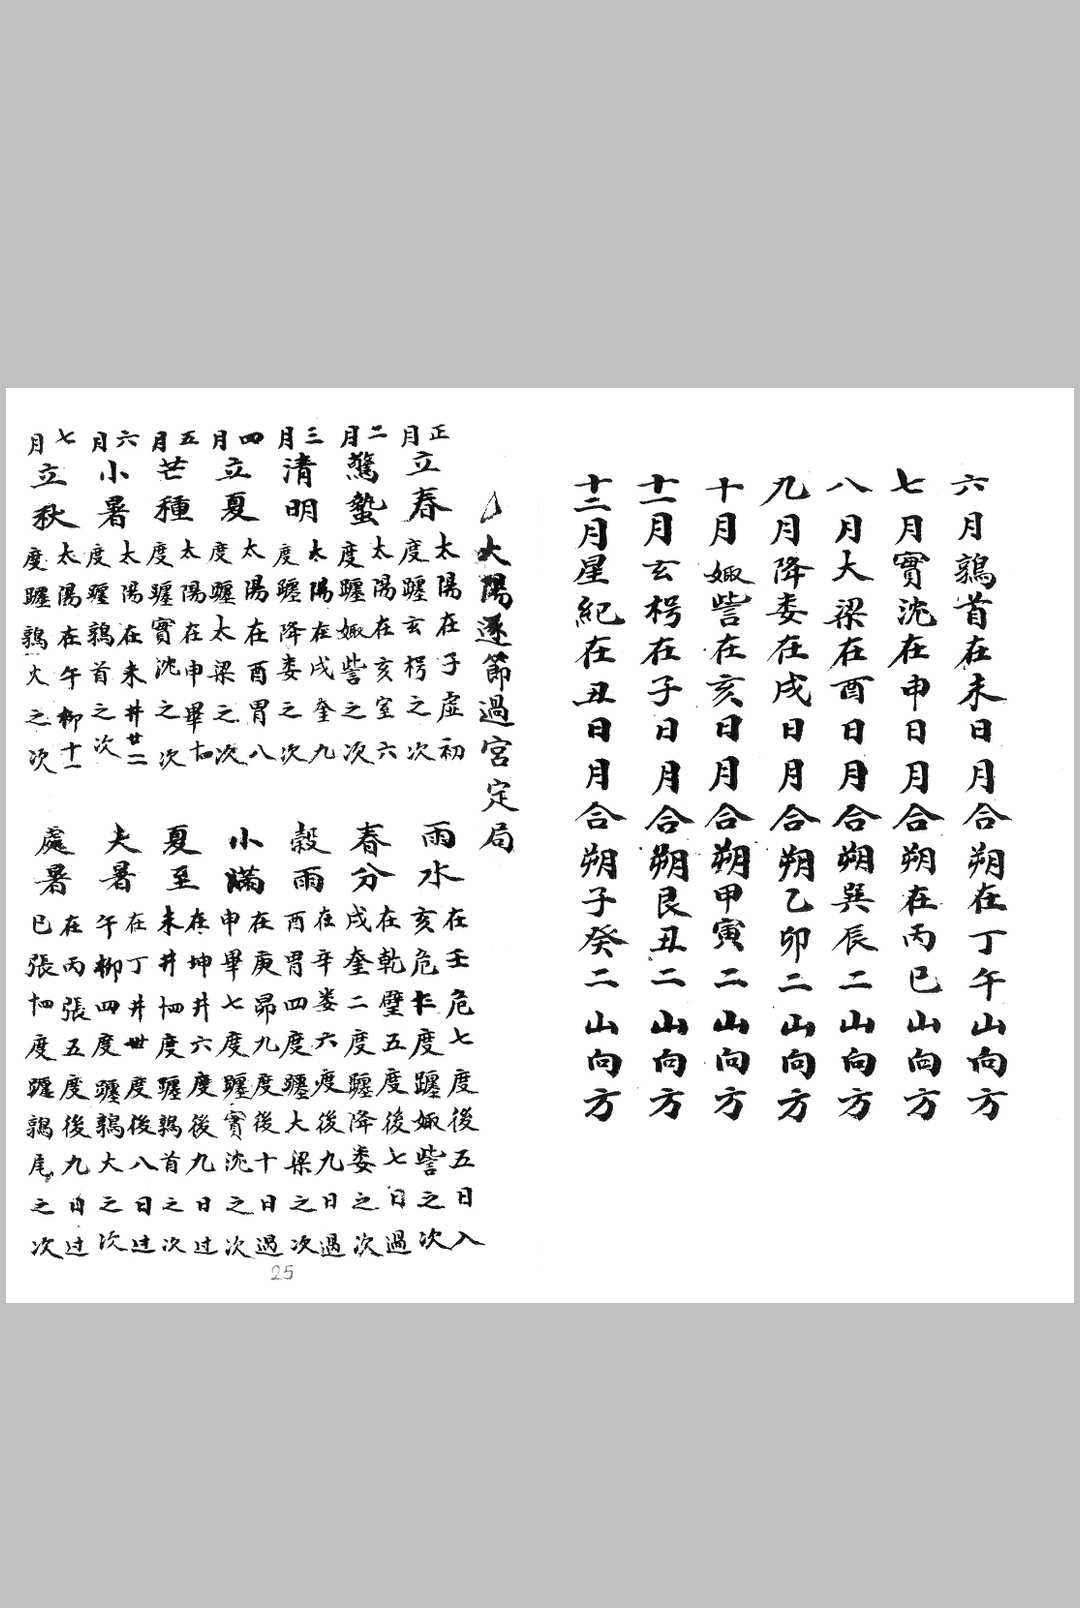 六月鶉首在未日月合朔在丁午山向方
七月實沈在申日月合朔在丙巳山向方
八月大梁在酉日月合朔巽辰二山向方
九月降婁在戌日月合朔乙卯二山向方
十月娵訾在亥日月合朔甲寅二山向方
十一月玄枵在子日月合朔艮丑二山向方
十二月星紀在丑日月合朔子癸二山向方
太陽逐節過宮定局
正月立春
太陽在子虛初
度躔玄枵之次
雨水
在壬危七度後五日入
亥危七度躔娵訾之次
二月驚蟄
太陽在亥室六
度躔娵訾之次
春分
在乾壁五度後七日過
戌奎二度躔降婁之次
三月清明
太陽在戌奎九
度躔降婁之次
穀雨
在辛婁六度後九日過
酉胃四度躔大梁之次
四月立夏
太陽在酉胃八
度躔太梁之次
小滿
在庚昴九度後十日過
申畢七度躔實沈之次
五月芒種
太陽在申畢十四
度躔實沈之次
夏至
在坤井六度後九日过
未井十四度躔鶉首之次
六月小暑
太陽在未井廿二
度躔鶉首之次
大暑
在丁井卅度後八日过
午柳四度躔鶉大之次
七月立秋
太陽在午柳十一
度躔鶉火之次
處暑
在丙張五度後九日过
巳張十四度躔鶉尾之次
25